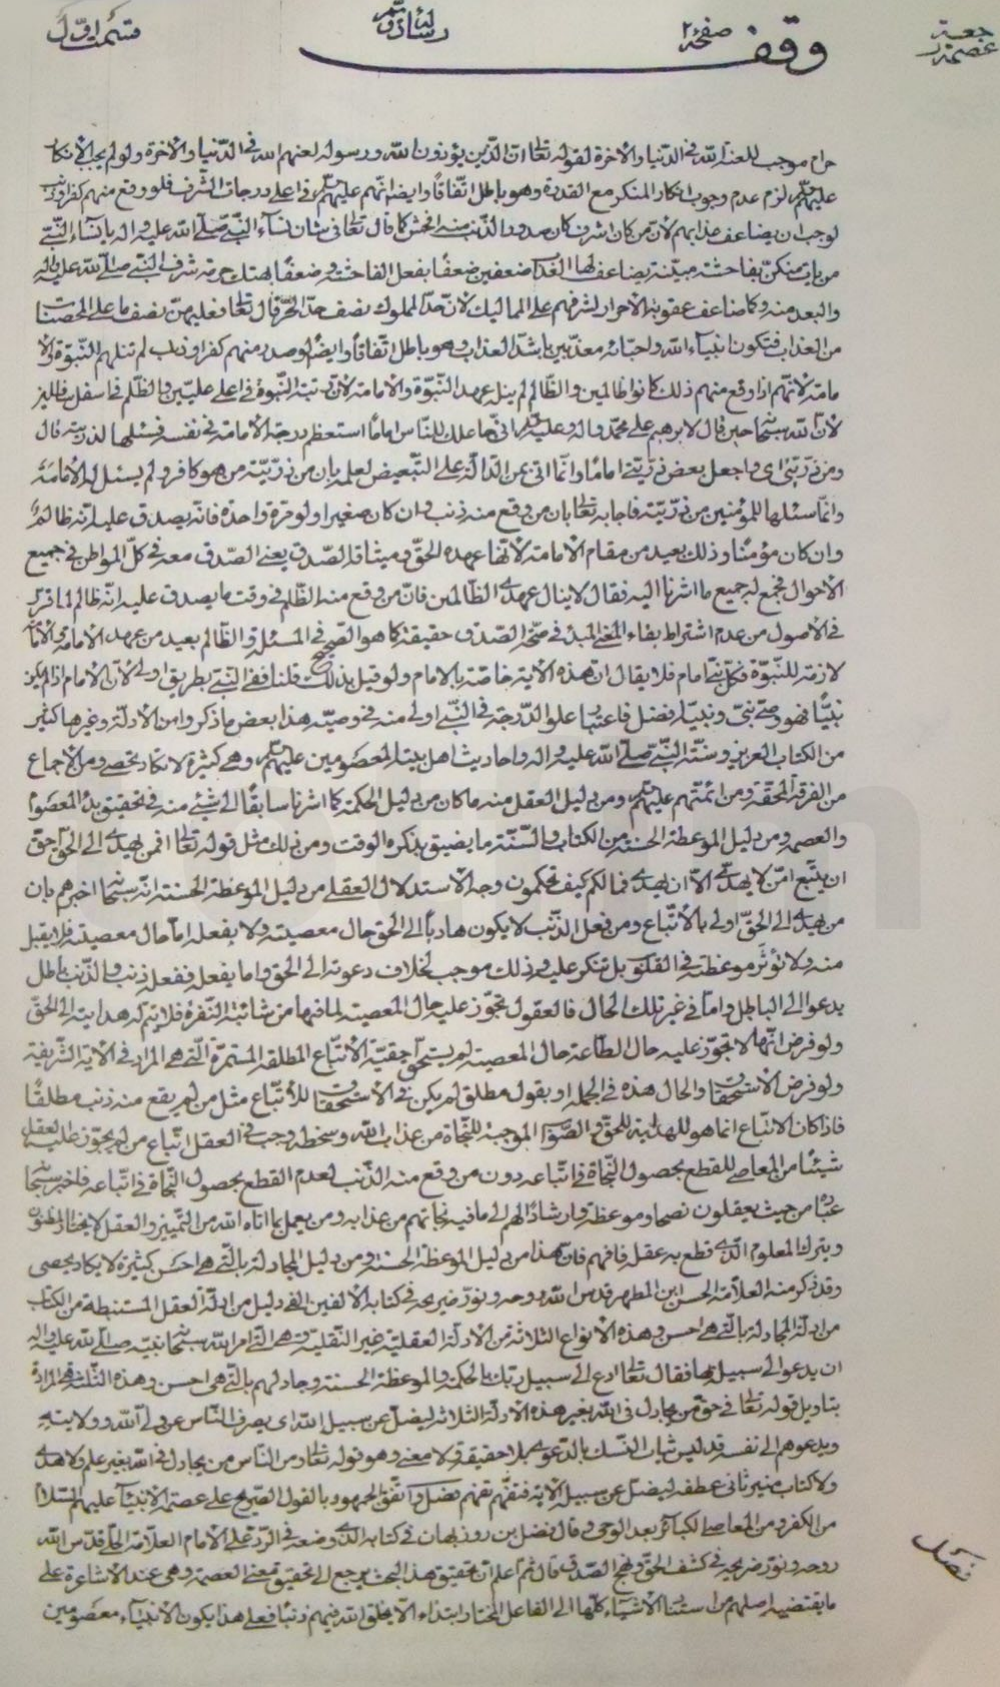 وقف
صفحة ٢
قسمت اوّل
حرام موجب للعنة الله فى الدّنيا والآخرة لقوله تعالى انّ الّذين يؤذون الله ورسوله لعنهم الله فى الدّنيا والآخرة ولو لم يجب الانكار
عليهم لزم عدم وجوب انكار المنكر مع القدرة وهو باطل اتّفاقًا وايضا انّهم عليهم فى اعلى درجات الشّرف فلو وقع منهم كفر او ذنب
لوجب ان يضاعف عذابهم لأنّ من كان اشرف كان صدور الذّنب منه افحش كما قال تعالى فى شأن نسآء النّبىّ صلّى الله عليه واله يا نسآء النّبىّ
من يأت منكنّ بفاحشة مبيّنة يضاعف لها العذاب ضعفين ضعفًا بفعل الفاحشة وضعفًا بهتك حرمة شرف النّبىّ صلّى الله عليه واله
والبعد منه وكما ضاعف عقوبة الاحرار لشرفهم على المماليك لأنّ حدّ المملوك نصف حدّ الحرّ قال تعالى فعليهنّ نصف ما على المحصنات
من العذاب فتكون انبيآء الله واحبّائه معذّبين باشدّ العذاب وهو باطل اتّفاقًا وايضا لو صدر منهم كفر او ذنب لم تنلهم النّبوّة ولا الا
مامة لأنّهم اذا وقع منهم ذلك كانوا ظالمين والظّالم لم ينل عهد النّبوّة والامامة لأنّ رتبة النّبوّة فى اعلى علّيّين والظّلم فى اسفل سافلين
لأنّ الله سبحانه حين قال لابرهيم على محمّد واله وعليه السلام انّى جاعلك للنّاس امامًا استعظم درجة الامامة فى نفسه فسئلها لذرّيته قال
ومن ذرّيّتى اى واجعل بعض ذرّيّتى امامًا وانّما اتى بمن الدّالّة على التّبعيض لعلمه بان من ذرّيّته من هو كافر ولم يسئل له الأمامة
وانّما سئلها للمؤمنين من ذرّيّته فاجابه تعالى بان من وقع منه ذنب وان كان صغيرا ولو مرّة واحدة فانّه يصدق عليه انّه ظالم
وان كان مؤمنًا وذلك بعيد من مقام الأمامة لأنّها عهده الحقّ وميثاقه الصّدق يعنى الصّدق معه فى كلّ المواطن فى جميع
الأحوال فجمع له جميع ما اشرنا اليه فقال لا ينال عهدى الظّالمين فانّ من وقع منه الظّلم فى وقت ما يصدق عليه انّه ظالم لما قرّر
فى الأصول من عدم اشتراط بقاء المعنى المبدء فى صحّة الصّدق حقيقة كما هو الصّحيح فى المسئلة والظّالم بعيد من عهد الامامة والامامة
لازمة للنّبوّة فكلّ نبىّ امام فلا يقال انّ هذه الآية خاصّة بالامام ولو قيل بذلك قلنا ففى النّبىّ بطريق اولى لأنّ الامام اذا لم يكن
نبيًّا فهو وصىّ نبىّ ونبيّه افضل فاعتبار علوّ الدّرجة فى النّبىّ اولى منه فى وصيّه هذا بعض ما ذكروا من الأدلّة وغيرها كثير
من الكتاب العزيز وسنّة النّبىّ صلّى الله عليه واله واحاديث اهل بيته المعصومين عليهم وهى كثيرة لا تكاد تحصى ومن الإجماع
من الفرقة المحقّة ومن ائمّتهم عليهم ومن دليل العقل منه ما كان من دليل الحكمة كما اشرنا سابقًا الى شىء منه فى تحقيق بدء المعصوم
والعصمة ومن دليل الموعظة الحسنة من الكتاب والسّنّة ما يضيق بذكره الوقت ومن ذلك مثل قوله تعالى افمن يهدى الى الحقّ احقّ
ان يتّبع امّن لا يهدّى الّا ان يهدى فما لكم كيف تحكمون وجه الاستدلال العقلى من دليل الموعظة الحسنة انّه سبحانه اخبرهم بان
من يهدى الى الحقّ اولى بالأتّباع ومن فعل الذّنب لا يكون هاديًا الى الحقّ حال معصيته ولا بفعله امّا حال معصيته فلا يقبل
منه ولا تؤثّر موعظته فى القلوب بل تنكر عليه وذلك موجب لخلاف دعوته الى الحقّ واما بفعله ففعله ذنب والذّنب باطل
يدعو الى الباطل وامّا فى غير تلك الحال فالعقول تجوّز عليه حال المعصية لما فيها من شائبة النّفرة فلا يتم له هدايته الى الحقّ
ولو فرض انّها لا تجوّز عليه حال الطّاعة حال المعصية لم يستحقّ حقيقة الأتّباع المطلقة المستمرّة الّتى هى المراد فى الآية الشّريفة
ولو فرض الأستحقاق والحال هذه فى الجملة او بقول مطلق لم يكن فى الأستحقاق للأتّباع مثل من لم يقع منه ذنب مطلقًا
فاذا كان الاتّباع انما هو للهداية للحقّ والصّواب الموجبة للنّجاة من عذاب الله وسخطه وجب فى العقل اتّباع من لم يجوّز عليه العقل
شيئًا من المعاصى للقطع بحصول النّجاة فى اتّباعه دون من وقع منه الذّنب لعدم القطع بحصول النّجاة فى اتّباعه فاخبر سبحانه
عباده من حيث يعقلون نصحا وموعظة وارشادًا لهم الى ما فيه نجاتهم من عذابه ومن يعمل بما اتاه الله من التّمييز والعقل لا يختار المظنون
ويترك المعلوم الّذى قطع به عقله فافهم فانّ هذا من دليل الموعظة الحسنة ومن دليل المجادلة بالّتى هى احسن كثيرة لا يكاد يحصى
وقد ذكر منه العلّامة الحسن ابن المطهر قدس الله روحه ونوّر ضريحه فى كتابه الألفين الفى دليل من ادلّة العقل المستنبطة من الكتاب
من ادلّة المجادلة بالّتى هى احسن وهذه الأنواع الثلاثة من الأدلّة العقليّة غير النّقليّة وهى الّتى امر الله سبحانه نبيّه صلّى الله عليه واله
ان يدعو الى سبيله بها فقال تعالى ادع الى سبيل ربّك بالحكمة والموعظة الحسنة وجادلهم بالّتى هى احسن وهذه الثّلثة هى المرادة
بتاويل قوله تعالى فى حقّ من يجادل فى الله بغير هذه الأدلّة الثلاثة ليضلّ عن سبيل الله اى يصرف النّاس عن ولىّ الله وولايته
ويدعوهم الى نفسه قد لبس ثياب النّسك بالدّعوى بلا حقيقة ولا معنى وهو قوله تعالى ومن النّاس من يجادل فى الله بغير علم ولا هدى
ولا كتاب منير ثانى عطفه ليضلّ عن سبيل الله الآية فتفهّم تفهم فصل واتّفق الجمهور بالقول الصّريح على عصمة الأنبيآء عليهم السّلام
من الكفر ومن المعاصى الكبائر بعد الوحى وقال فضل بن روزبهان فى كتابه الّذى وضعه فى الرّد على الامام العلّامة الحلّى قدّس الله
روحه ونوّر ضريحه فى كشف الحقّ ونهج الصّدق قال ثم اعلم انّ تحقيق هذا البحث يرجع الى تحقيق معنى العصمة وهى عند الأشاعرة على
ما يقتضيه اصلهم من استناد الأشياء كلّها الى الفاعل المختار ابتداء الّا يخلق الله فيهم ذنبًا فعلى هذا يكون الأنبيآء معصومين
فصل